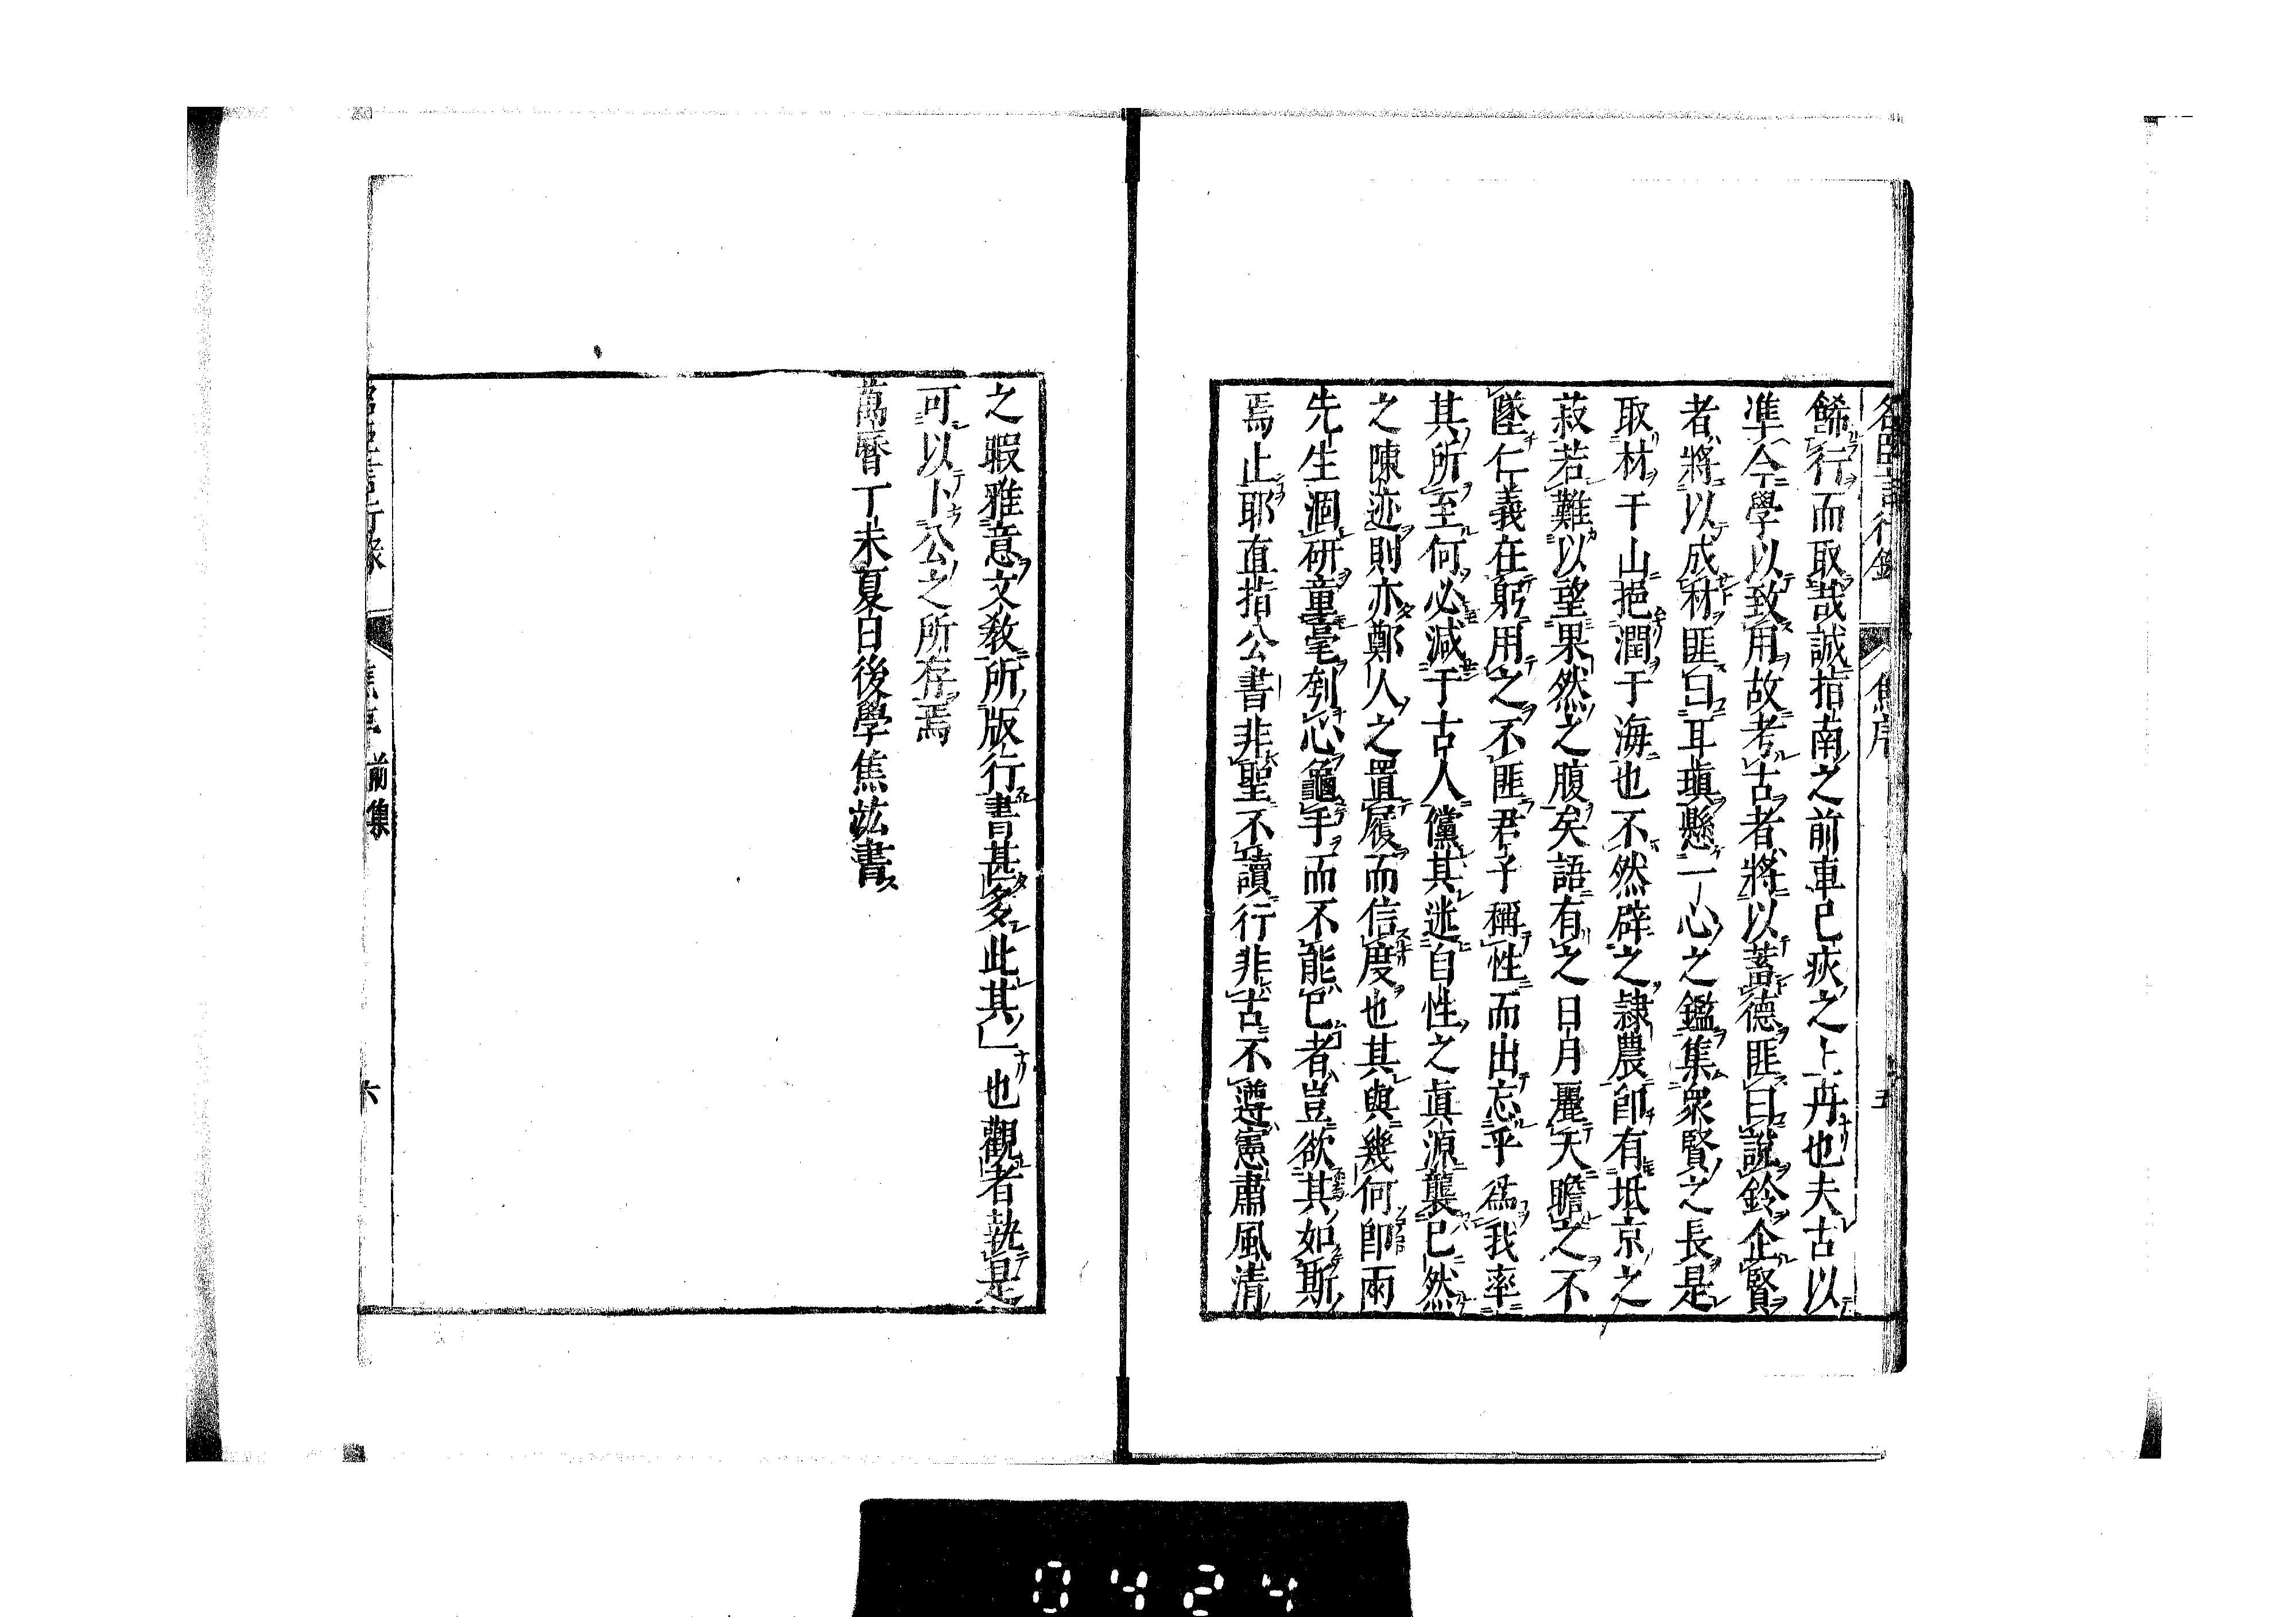 名臣言行錄 焦序 五
餙行而取哉誠指南之前車已疾之上丹也夫古以
準今學以致用故考古者將以蓄德匪曰說鈴企賢
者將以成材匪曰耳瑱懸一心之鑑集衆賢之長是
取材于山挹潤于海也不然辟之隷農卽有坻京之
菽若難以望果然之腹矣語有之日月麗天瞻之不
墜仁義在躬用之不匪君子稱性而出忘乎爲我率
其所至何必減于古人儻其迷自性之眞源襲已然
之陳迹則亦鄭人之置履而信度也其與幾何卽兩
先生涸研童毫刳心龜手而不能已者豈欲其如斯
焉止耶直指公書非聖不讀行非古不遵憲肅風清
之暇雅意文敎所版行書甚多此其一也觀者執是
可以卜公之所存焉
萬曆丁未夏日後學焦竑書
名臣言行錄 焦序 前集 六
0424